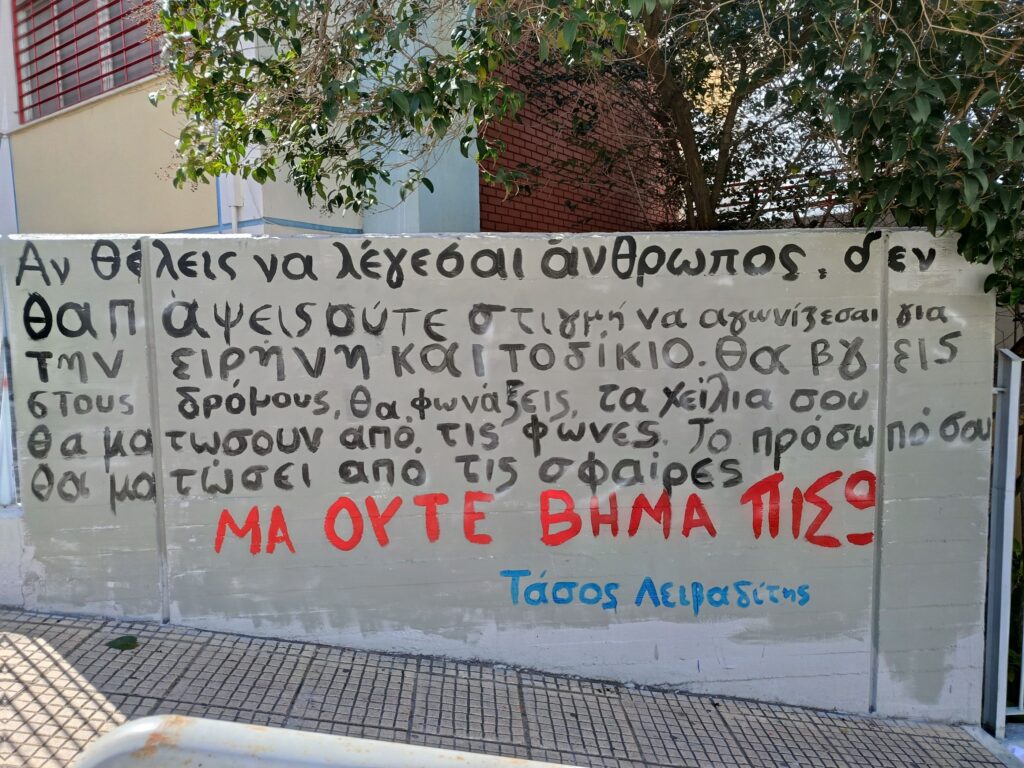 Αν θέλεις να λέγεσαι άνθρωπος, δεν
θα π άψεις ούτε στιγμή να αγωνίζεσαι για
την ειρήνη και το δίκιο. θα βγεις
στους δρόμους, θα φωνάξεις, τα χείλια σου
θα ματωσουν από τις φωνες. Το πρόσωπό σου
θα ματώσει από τις σφαίρες
ΜΑ ΟΥΤΕ ΒΗΜΑ ΠΙΣΩ
Τάσος Λειβαδίτης